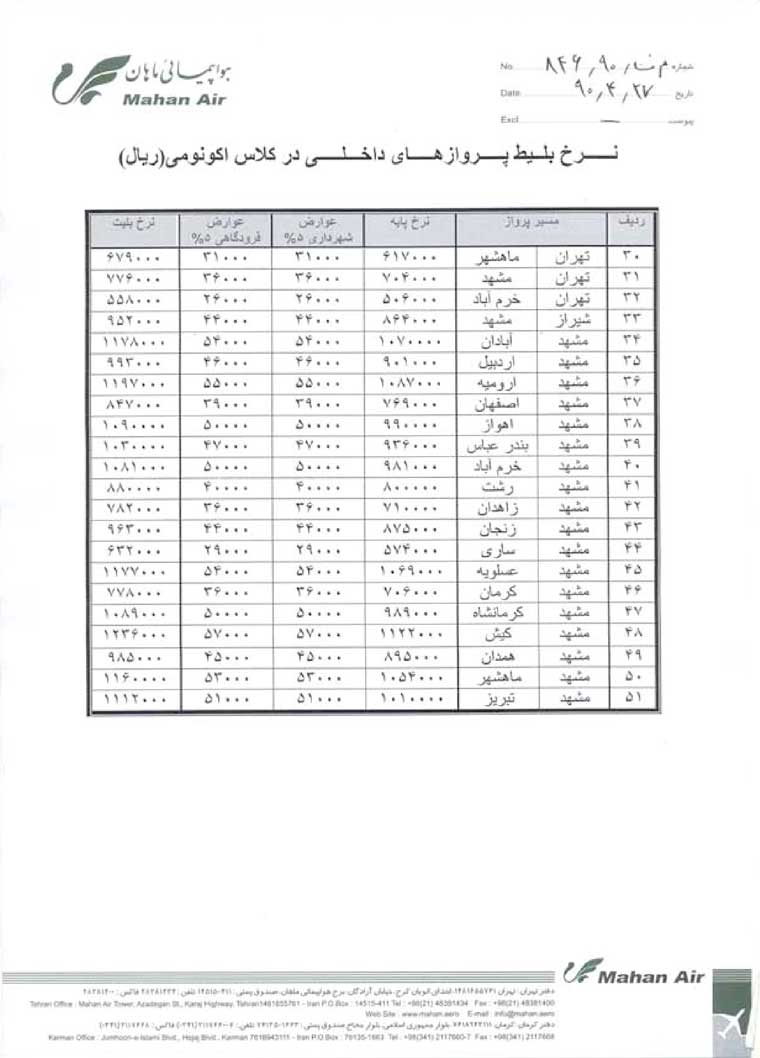 هواپیمائی ماهان
Mahan Air
شماره م ت / ۹۰ / ۸۴۶ No
تاریخ ۹۰ / ۴ / ۲۷ Date
پیوست — Excl
نرخ بلیط پروازهای داخلی در کلاس اکونومی(ریال)
ردیف مسیر پرواز نرخ پایه عوارض شهرداری ۵% عوارض فرودگاهی ۵% نرخ بلیت
۳۰ تهران ماهشهر ۶۱۷۰۰۰ ۳۱۰۰۰ ۳۱۰۰۰ ۶۷۹۰۰۰
۳۱ تهران مشهد ۷۰۴۰۰۰ ۳۶۰۰۰ ۳۶۰۰۰ ۷۷۶۰۰۰
۳۲ تهران خرم آباد ۵۰۶۰۰۰ ۲۶۰۰۰ ۲۶۰۰۰ ۵۵۸۰۰۰
۳۳ شیراز مشهد ۸۶۴۰۰۰ ۴۴۰۰۰ ۴۴۰۰۰ ۹۵۲۰۰۰
۳۴ مشهد آبادان ۱۰۷۰۰۰۰ ۵۴۰۰۰ ۵۴۰۰۰ ۱۱۷۸۰۰۰
۳۵ مشهد اردبیل ۹۰۱۰۰۰ ۴۶۰۰۰ ۴۶۰۰۰ ۹۹۳۰۰۰
۳۶ مشهد ارومیه ۱۰۸۷۰۰۰ ۵۵۰۰۰ ۵۵۰۰۰ ۱۱۹۷۰۰۰
۳۷ مشهد اصفهان ۷۶۹۰۰۰ ۳۹۰۰۰ ۳۹۰۰۰ ۸۴۷۰۰۰
۳۸ مشهد اهواز ۹۹۰۰۰۰ ۵۰۰۰۰ ۵۰۰۰۰ ۱۰۹۰۰۰۰
۳۹ مشهد بندر عباس ۹۳۶۰۰۰ ۴۷۰۰۰ ۴۷۰۰۰ ۱۰۳۰۰۰۰
۴۰ مشهد خرم آباد ۹۸۱۰۰۰ ۵۰۰۰۰ ۵۰۰۰۰ ۱۰۸۱۰۰۰
۴۱ مشهد رشت ۸۰۰۰۰۰ ۴۰۰۰۰ ۴۰۰۰۰ ۸۸۰۰۰۰
۴۲ مشهد زاهدان ۷۱۰۰۰۰ ۳۶۰۰۰ ۳۶۰۰۰ ۷۸۲۰۰۰
۴۳ مشهد زنجان ۸۷۵۰۰۰ ۴۴۰۰۰ ۴۴۰۰۰ ۹۶۳۰۰۰
۴۴ مشهد ساری ۵۷۴۰۰۰ ۲۹۰۰۰ ۲۹۰۰۰ ۶۳۲۰۰۰
۴۵ مشهد عسلویه ۱۰۶۹۰۰۰ ۵۴۰۰۰ ۵۴۰۰۰ ۱۱۷۷۰۰۰
۴۶ مشهد کرمان ۷۰۶۰۰۰ ۳۶۰۰۰ ۳۶۰۰۰ ۷۷۸۰۰۰
۴۷ مشهد کرمانشاه ۹۸۹۰۰۰ ۵۰۰۰۰ ۵۰۰۰۰ ۱۰۸۹۰۰۰
۴۸ مشهد کیش ۱۱۲۲۰۰۰ ۵۷۰۰۰ ۵۷۰۰۰ ۱۲۳۶۰۰۰
۴۹ مشهد همدان ۸۹۵۰۰۰ ۴۵۰۰۰ ۴۵۰۰۰ ۹۸۵۰۰۰
۵۰ مشهد ماهشهر ۱۰۵۴۰۰۰ ۵۳۰۰۰ ۵۳۰۰۰ ۱۱۶۰۰۰۰
۵۱ مشهد تبریز ۱۰۱۰۰۰۰ ۵۱۰۰۰ ۵۱۰۰۰ ۱۱۱۲۰۰۰
Mahan Air
دفتر تهران: تهران ۱۴۸۱۶۵۵۷۶۱، ابتدای اتوبان کرج، خیابان آزادگان، برج هواپیمائی ماهان، صندوق پستی: ۴۱۱-۱۴۵۱۵ تلفن: فاکس:
Tehran Office : Mahan Air Tower, Azadegan St., Karaj Highway, Tehran1481655761 - Iran P.O.Box : 14515-411 Tel : +98(21) 48381434 Fax : +98(21) 48381400
Web Site : www.mahan.aero E-mail : info@mahan.aero
دفتر کرمان: کرمان، بلوار جمهوری اسلامی، بلوار صندوق پستی: تلفن: فاکس:
Kerman Office : Jomhoori-e-Islami Blvd., Hojaj Blvd., Kerman 7618943111 - Iran P.O.Box : 76135-1663 Tel : +98(341) 2117660-7 Fax : +98(341) 2117668